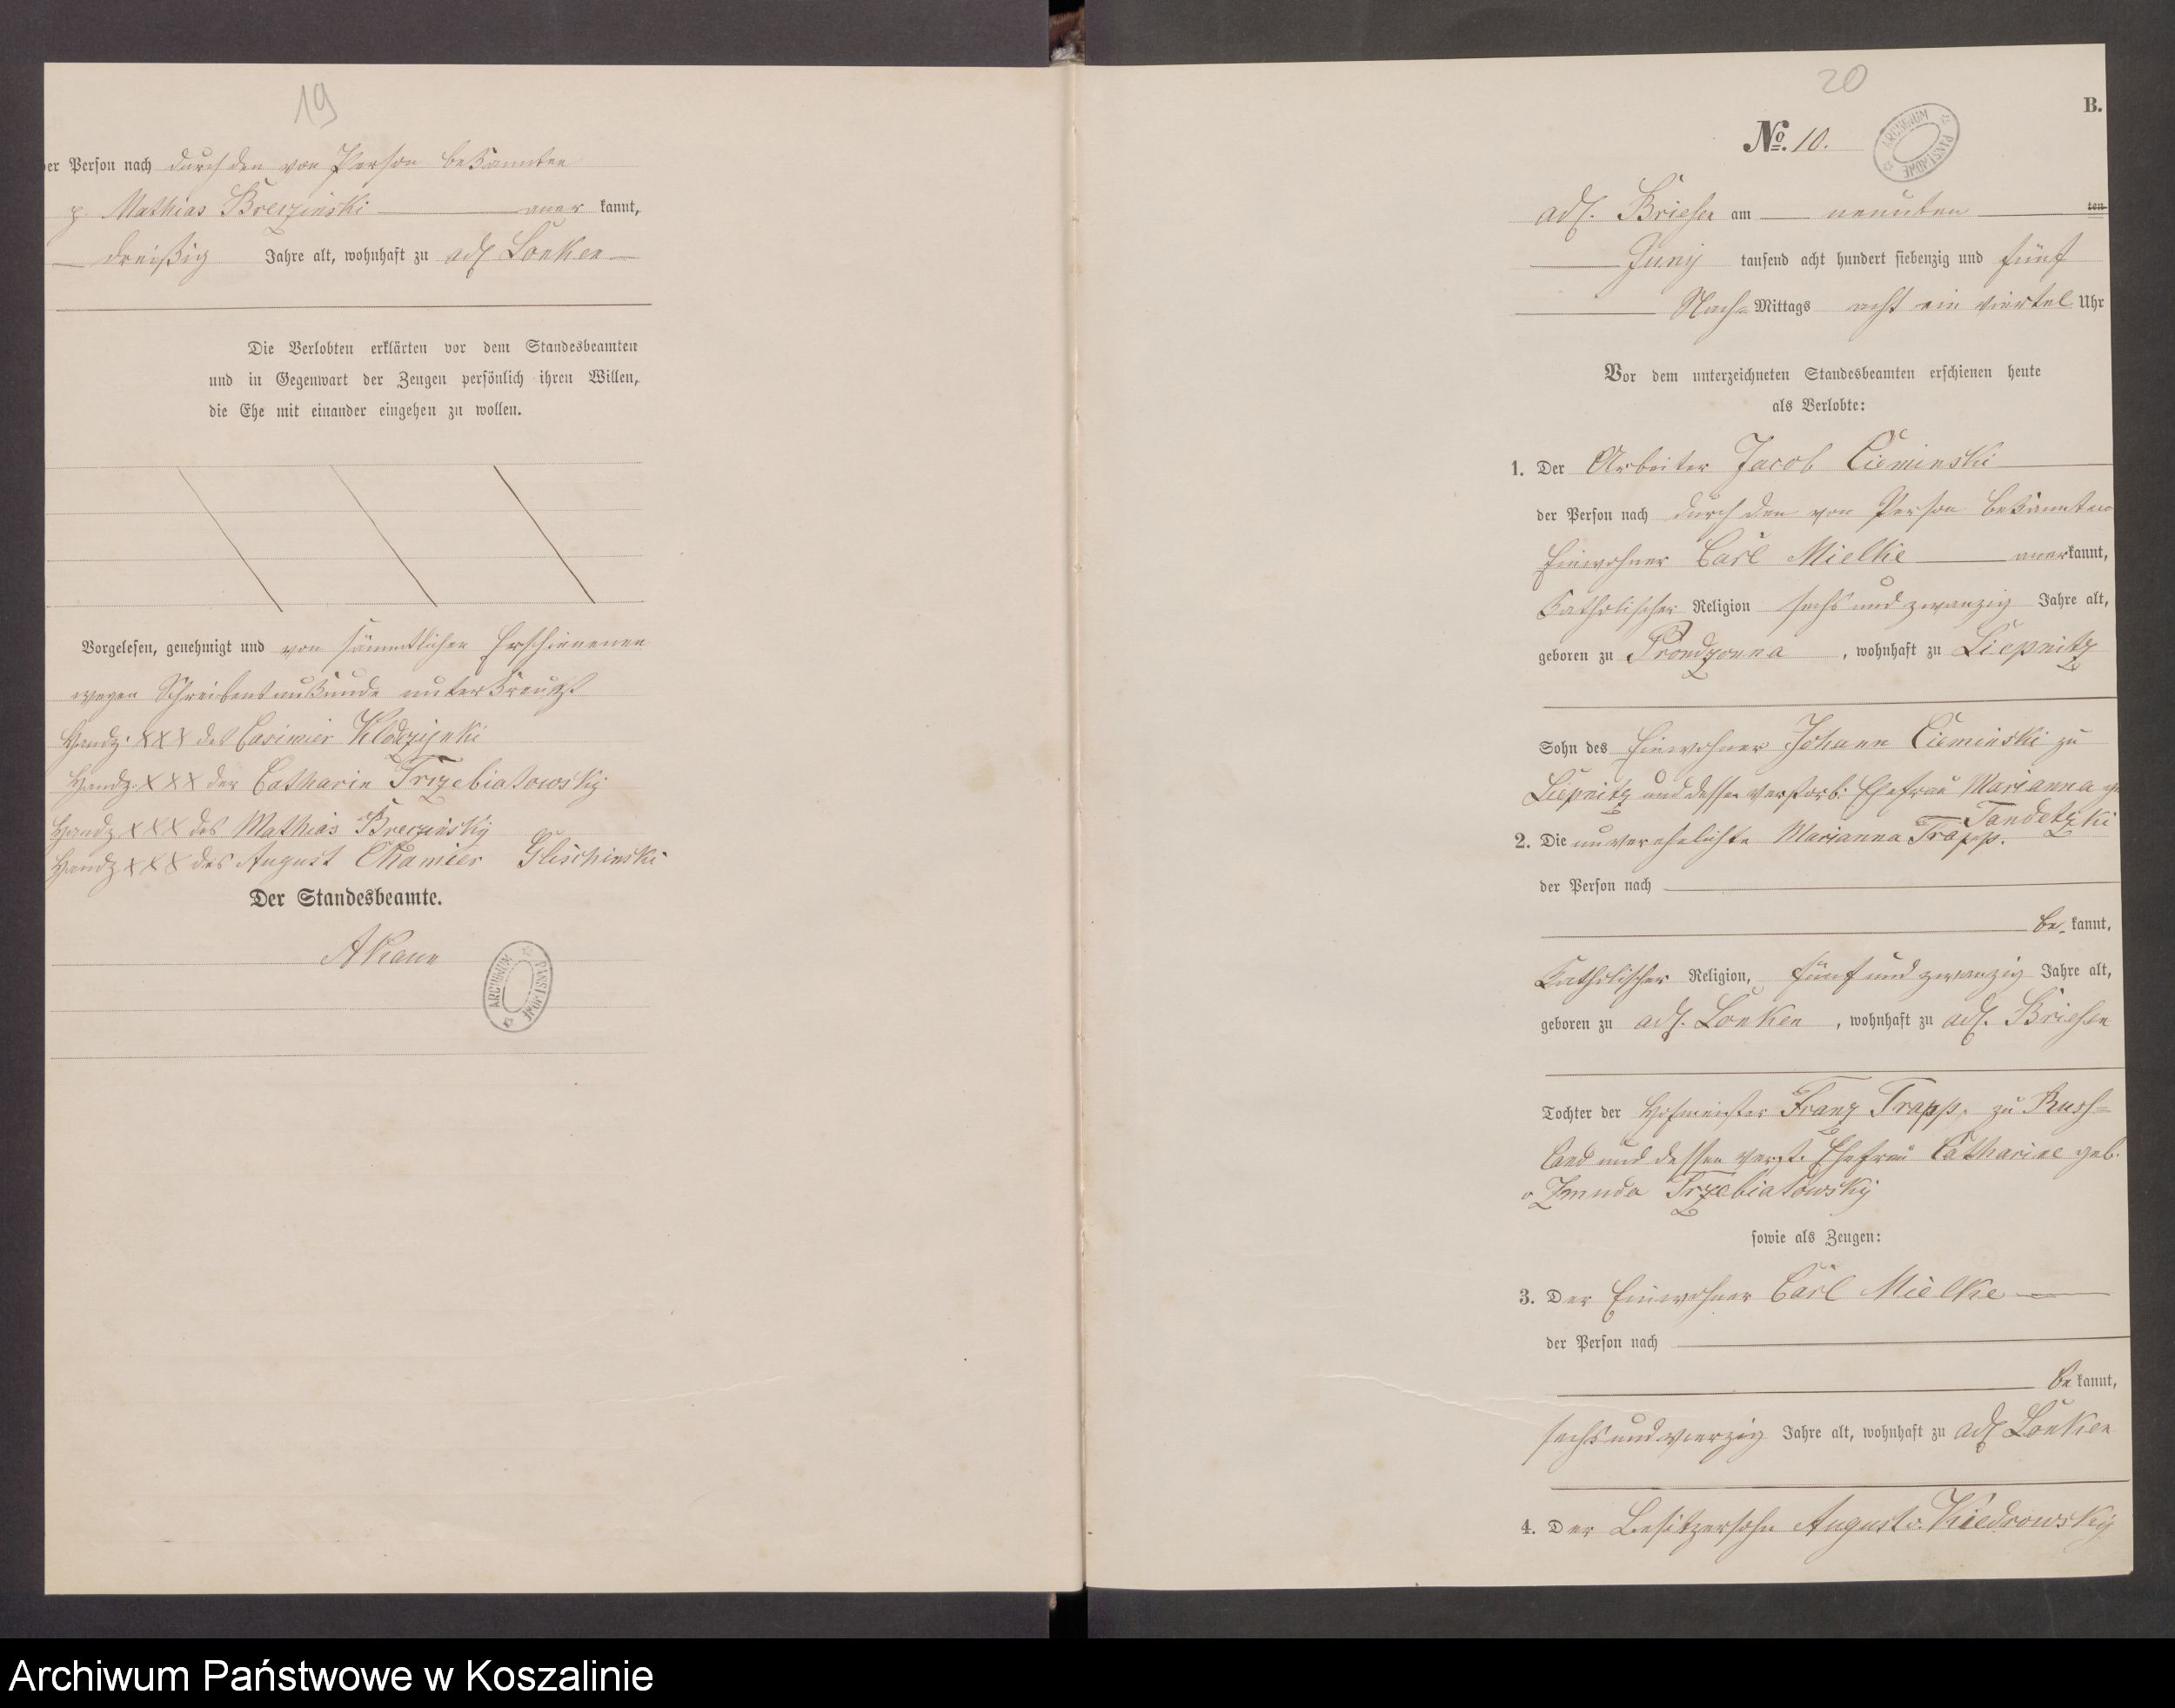 19
der Person nach durch den von Person bekannten
p. Mathias Breczinski aner kannt,
dreißig Jahre alt, wohnhaft zu adl Lonken
Die Verlobten erklärten vor dem Standesbeamten
und in Gegenwart der Zeugen persönlich ihren Willen,
die Ehe mit einander eingehen zu wollen.
Vorgelesen, genehmigt und von sämmtlichen Erschienenen
wegen Schreibensunkunde unterkreuzt
Handz. XXX des Casimier
Handz. XXX der Catharin Trzebiatowsky
Handz XXX des Mathias Breczinsky
Handz XXX des August Chamier Glischinski
Der Standesbeamte.
ARCHIWUM PAŃSTWOWE
20
B.
No. 10.
ARCHIWUM PAŃSTWOWE
adl. Briesen am neunten ten
Juny tausend acht hundert siebenzig und fünf
Nach Mittags acht ein viertel Uhr
Vor dem unterzeichneten Standesbeamten erschienen heute
als Verlobte:
1. Der Arbeiter Jacob Cieminski
der Person nach durch den von Person bekannten
Einwohner Carl Mielke anerkannt,
katholischer Religion sechs und zwanzig Jahre alt,
geboren zu Prondzonna, wohnhaft zu Liepnitz
Sohn des Einwohner Johann Cieminski zu
Liepnitz und dessen verstorb: Ehefrau Marianna
Tandetzki
2. Die unverehelichte Marianna Trapp.
der Person nach
be- kannt,
katholischer Religion, fünf und zwanzig Jahre alt,
geboren zu adl. Lonken, wohnhaft zu adl. Briesen
Tochter der Hofmeister Franz Trapp. zu Russ=
land und dessen verst. Ehefrau Catharine geb.
v Zmuda Trzebiatowsky
sowie als Zeugen:
3. Der Einwohner Carl Mielke
der Person nach
be kannt,
sechs und vierzig Jahre alt, wohnhaft zu adl Lonken
4. Der Besitzersohn August v. Kiedrowsky
Archiwum Państwowe w Koszalinie